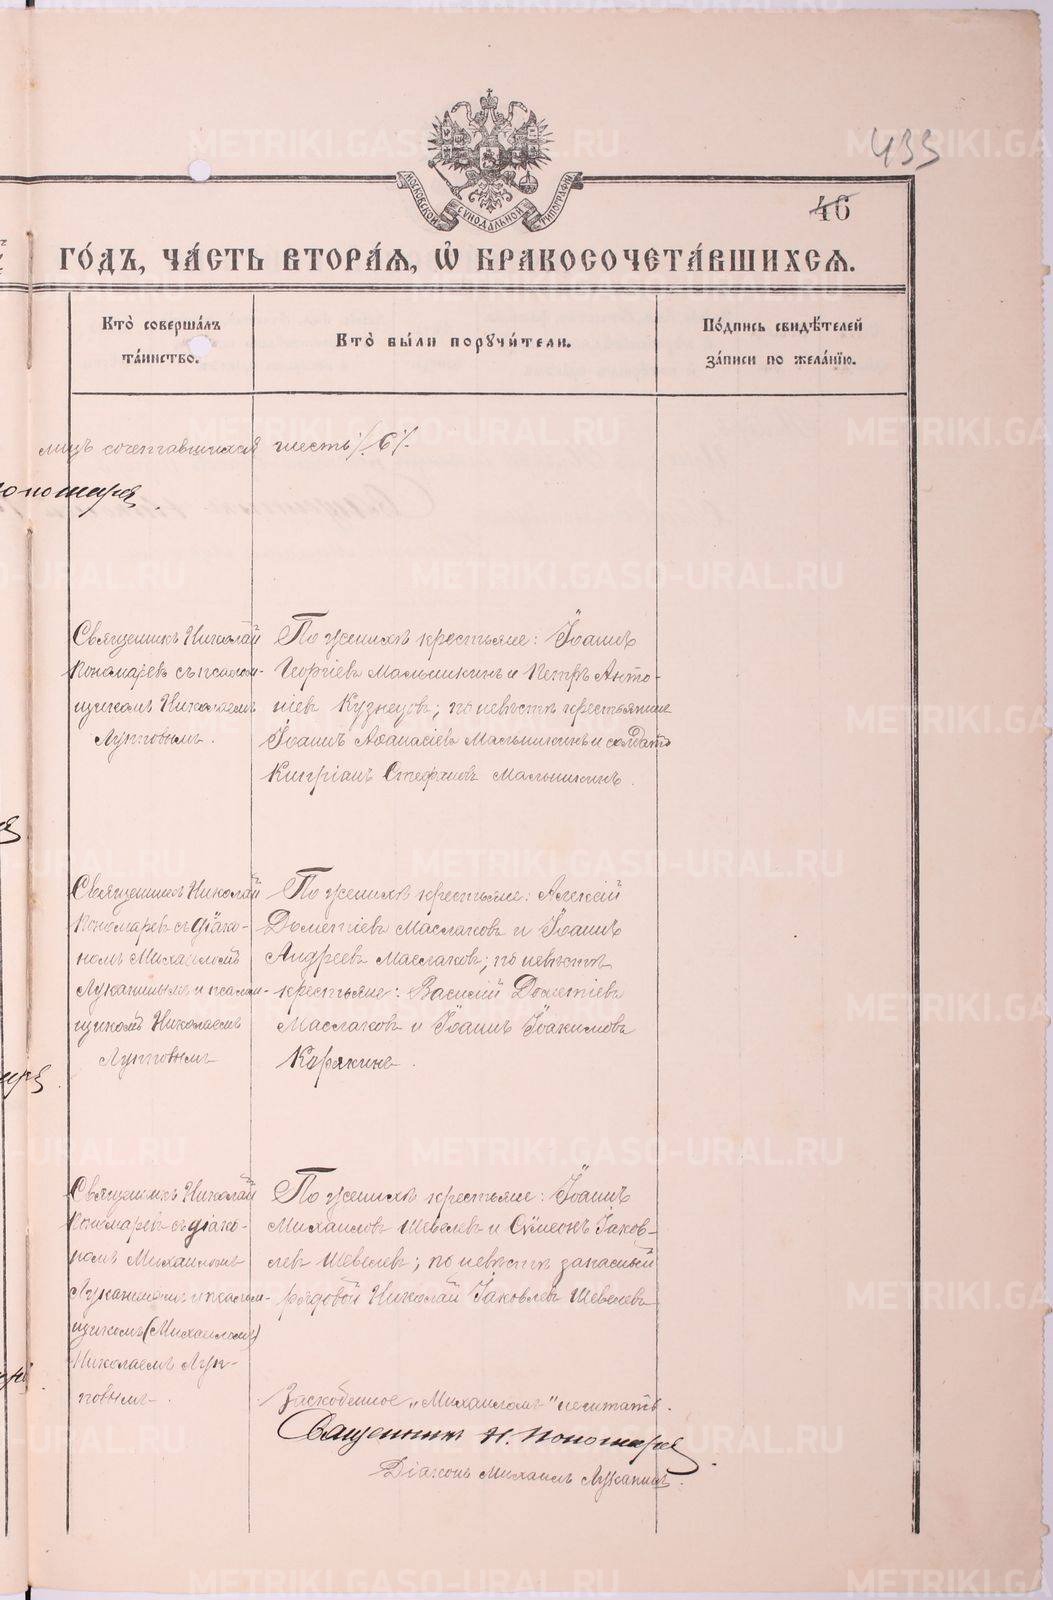 433
46
МОСКОВСКОЙ СѴНОДАЛЬНОЙ ТИПОГРАФІИ
ГО́ДЪ, ЧА́СТЬ ВТОРА́Ѧ, Ѽ БРАКОСОЧЕТА́ВШИХСѦ.
Кто̀ соверша́лъ
та́инство.
Кто̀ бы́ли порꙋчи́тели.
По́дпись свидѣ́телей
за́писи по жела́нїю.
лицъ сочетавшихся шесть /6/.
Пономарев
Священникъ Николай
Пономаревъ съ псалом-
щикомъ Николаемъ
Лупповымъ.
По женихѣ крестьяне: Іоаннъ
Георгіевъ Мальшикинъ и Петръ Анто-
ніев Кузнецовъ; по невѣстѣ крестьянине
Іоаннъ Аѳанасіевъ Мальшикинъ и солдатъ
Кипріанъ Стефановъ Мальшикинъ.
Священникъ Николай
Пономаревъ съ діако-
номъ Михаиломъ
Луканинымъ и псалом-
щикомъ Николаемъ
Лупповымъ
По женихѣ крестьяне: Алексій
Дометіевъ Маслаковъ и Іоаннъ
Андреевъ Маслаковъ; по невѣстѣ
крестьяне: Василій Дометіевъ
Маслаковъ и Іоаннъ Іоакимовъ
Корякинъ.
Священникъ Николай
Пономаревъ съ діако-
номъ Михаиломъ
Луканинымъ и псалом-
щикомъ (Михаиломъ)
Николаемъ Луп-
повымъ.
По женихѣ крестьяне: Іоаннъ
Михаиловъ Шевелевъ и Сѵмеонъ Іаков-
левъ Шевелевъ; по невѣстѣ запасный
рядовой Николай Іаковлевъ Шевелевъ
Заскобленное „Михаиломъ" не читать.
Священникъ Н. Пономарев
Діаконъ Михаилъ Луканинъ.
METRIKI.GASO-URAL.RU